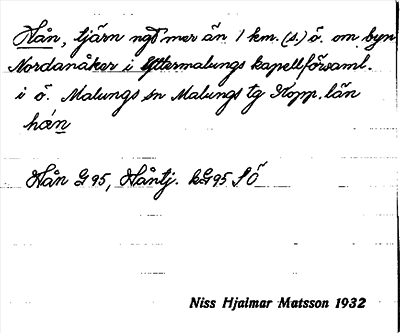 Hån, tjärn ngt mer än 1 km. (s.) ö. om byn
Nordanåker i Yttermalungs kapellförsaml.
i ö. Malungs sn Malungs tg Kopp. län
hån
Hån G 95, Håntj. kG95 SÖ
Niss Hjalmar Matsson 1932